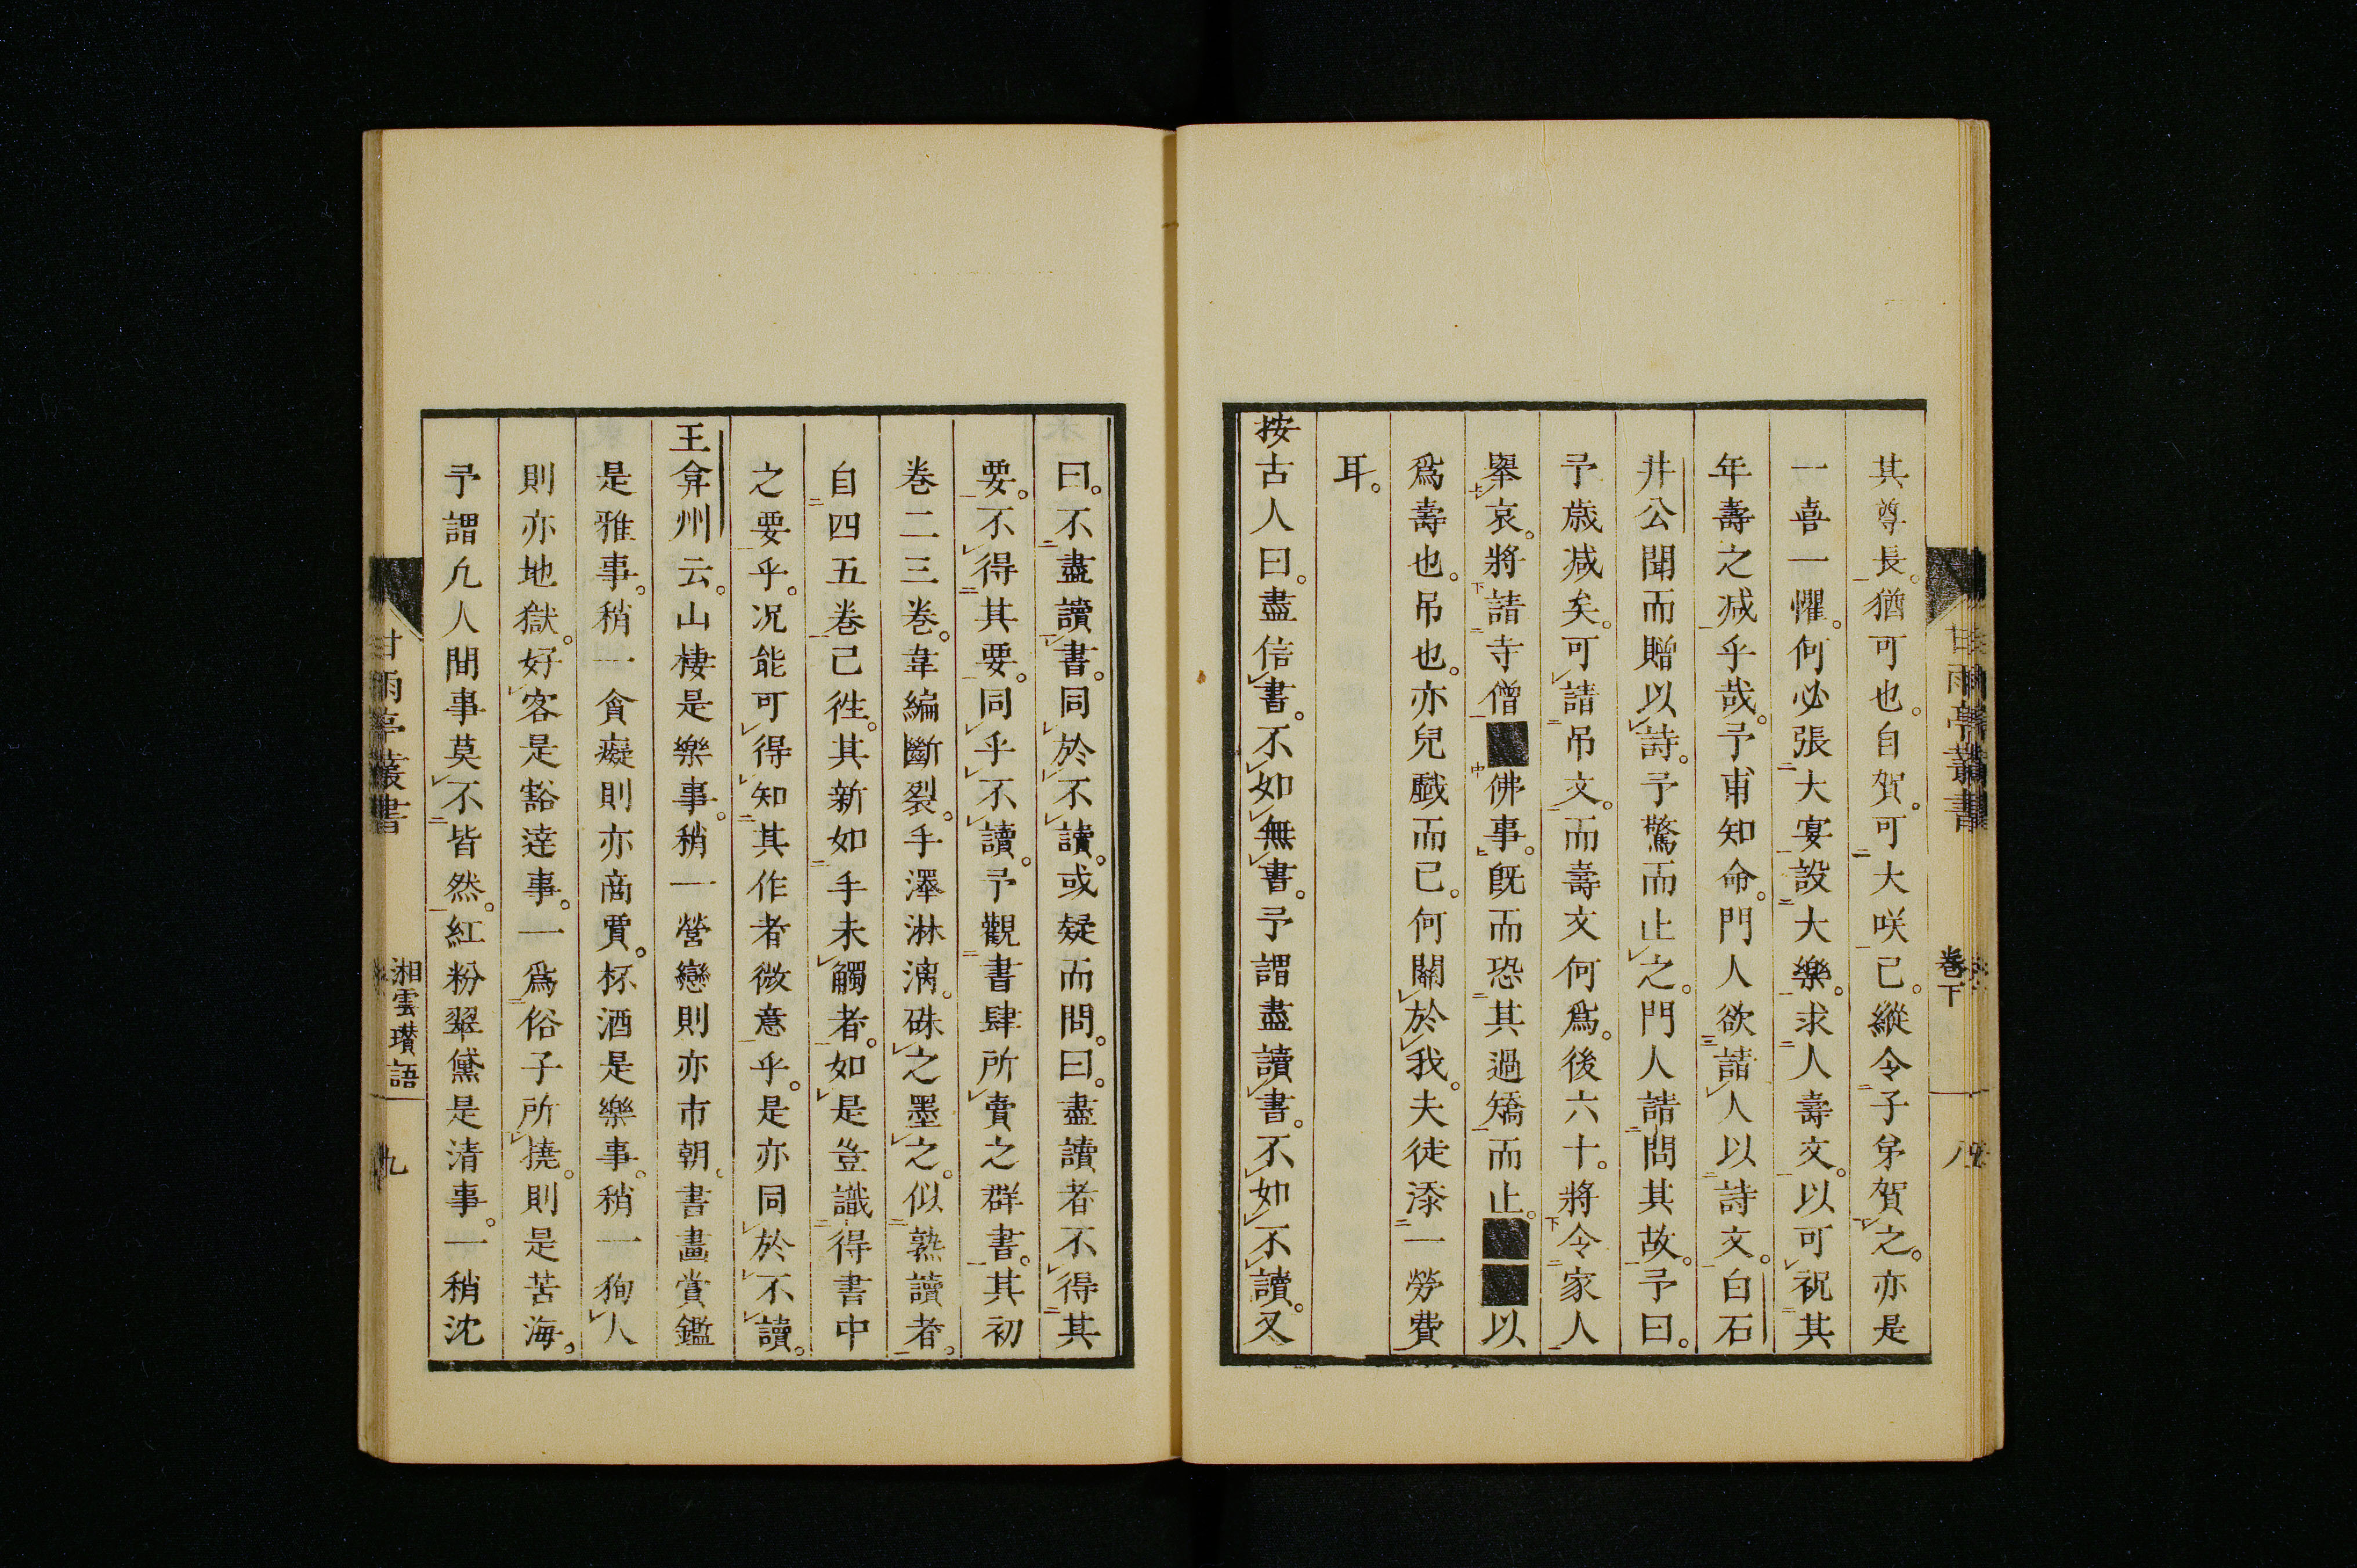 其尊長。猶可也。自賀。可大咲已。縱令子弟賀之。亦是
一喜一懼。何必張大宴設大樂。求人壽文。以可祝其
年壽之减乎哉。予甫知命。門人欲請人以詩文。白石
井公聞而贈以詩。予驚而止之。門人請問其故。予曰。
予歳减矣。可請吊文。而壽文何爲。後六十。將令家人
擧哀。將請寺僧■佛事。旣而恐其過矯而止。■■以
爲壽也。吊也。亦兒戲而已。何關於我。夫徒添一勞費
耳。
按古人曰。盡信書。不如無書。予謂盡讀書。不如不讀。又
曰。不盡讀書。同於不讀。或疑而問。曰。盡讀者不得其
要。不得其要。同乎不讀。予觀書肆所賣之群書。其初
卷二三卷。韋編斷裂。手澤淋漓。硃之墨之。似熟讀者。
自四五卷已徃。其新如手未觸者。如是豈識得書中
之要乎。况能可得知其作者微意乎。是亦同於不讀。
王弇州云。山棲是樂事。稍一營戀則亦市朝。書畫賞鑑
是雅事。稍一貪癡則亦商賈。杯酒是樂事。稍一狥人
則亦地獄。好客是豁達事。一爲俗子所撓。則是苦海。
予謂凢人間事莫不皆然。紅粉翠黛是清事。一稍沈
甘雨亭叢書
卷下
八
甘雨亭叢書
湘雲瓚語
九